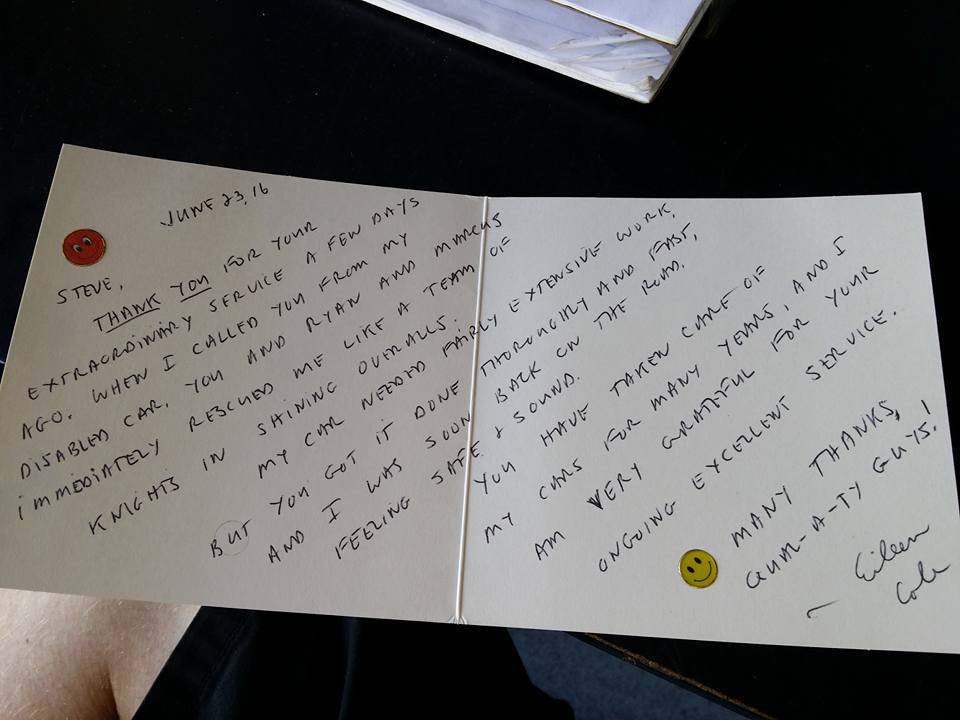 JUNE 23, 16
STEVE,
THANK YOU FOR YOUR
EXTRAORDINARY SERVICE A FEW DAYS
AGO. WHEN I CALLED YOU FROM MY
DISABLED CAR, YOU AND RYAN AND MARCUS
iMMEDIATELY RESCUED ME LIKE A TEAM OF
KNIGHTS IN SHINING OVERALLS.
MY CAR NEEDED FAIRLY EXTENSIVE WORK,
BUT YOU GOT IT DONE THOROUGHLY AND FAST,
AND I WAS SOON BACK ON THE ROAD.
FEELING SAFE & SOUND.
YOU HAVE TAKEN CARE OF
MY CARS FOR MANY YEARS, AND I
AM VERY GRATEFUL FOR YOUR
ONGOING EXCELLENT SERVICE.
MANY THANKS,
QUAL-A-TY GUYS!
– Eileen